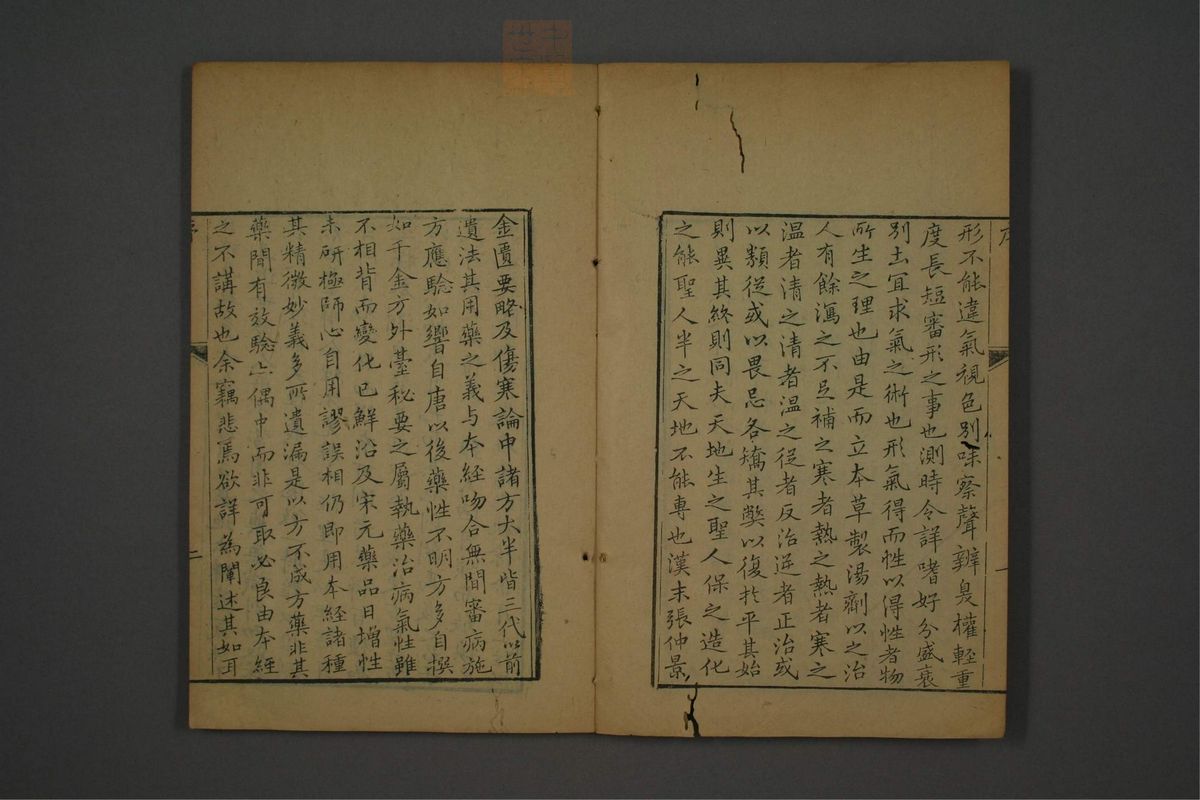 形不能違氣視色別味察聲辨臭權輕重
度長短審形之事也測時令詳嗜好分盛衰
別土冝求氣之術也形氣得而性以得性者物
所生之理也由是而立本草製湯劑以之治
人有餘瀉之不足補之寒者熱之熱者寒之
温者清之清者温之從者反治逆者正治或
以類從或以畏忌各矯其弊以復扵平其始
則異其終則同夫天地生之聖人保之造化
之能聖人半之天地不能專也漢末張仲景
金匱要略及傷寒論中諸方大半皆三代以前
遺法其用藥之義与本經吻合無間審病施
方應騐如響自唐以後藥性不明方多自撰
如千金方外臺秘要之屬執藥治病氣性雖
不相背而變化已鮮沿及宋元藥品日增性
未研極師心自用謬誤相仍即用本經諸種
其精微妙義多所遺漏是以方不成方藥非其
藥間有效騐亦偶中而非可取必良由本經
之不講故也余竊悲焉欲詳為闡述其如耳
序
二
序
一